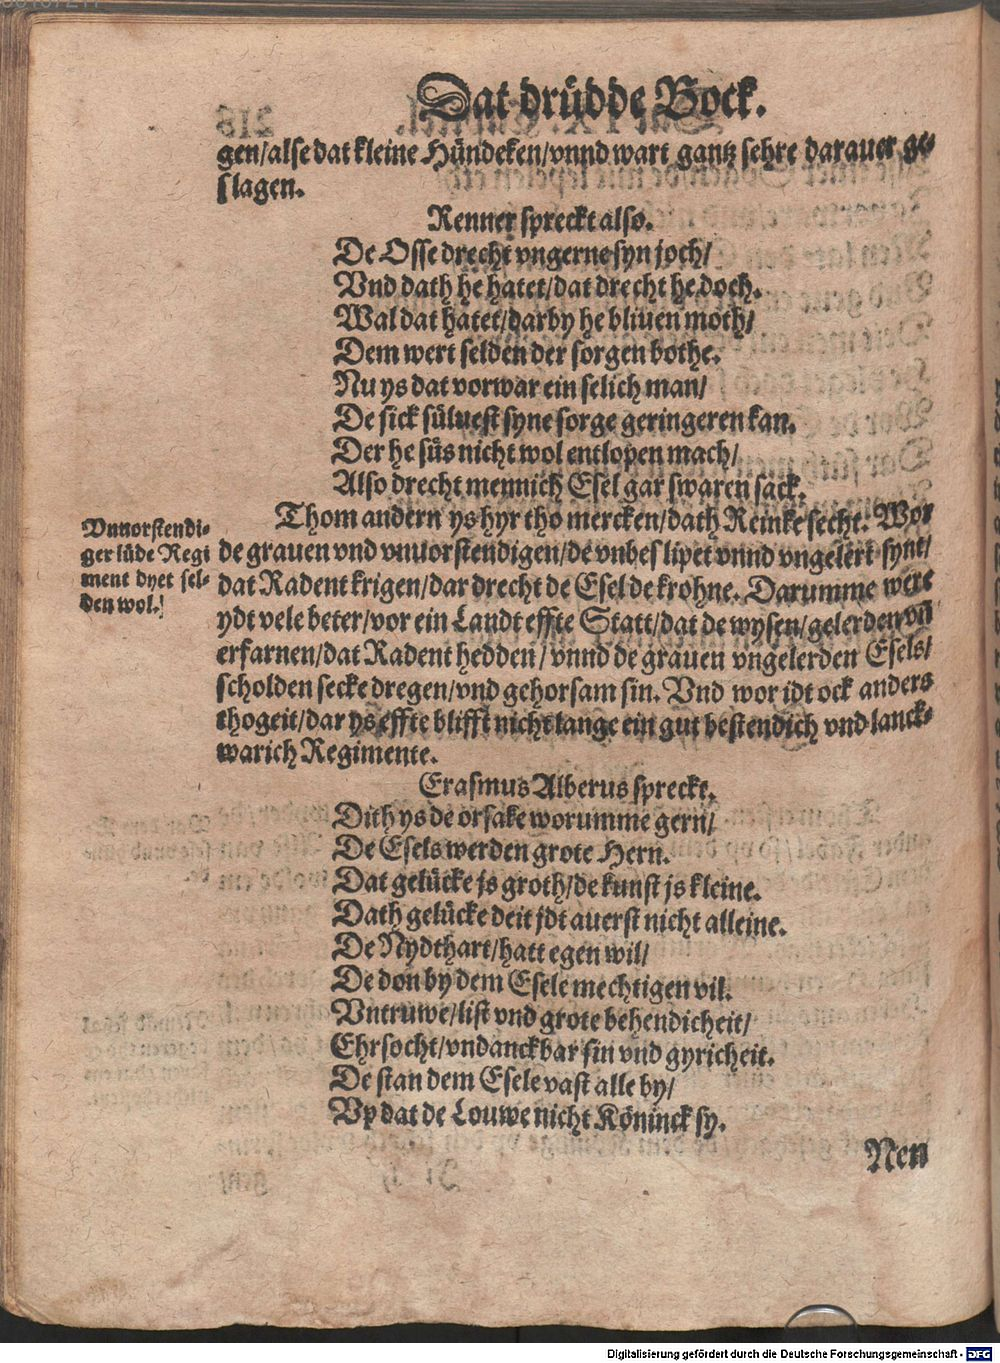 Dat drüdde Bock.
gen/alse dat kleine Hündeken/vnnd wart gantz sehre darauer ge-
slagen.
Renner spreckt also.
De Osse drecht vngerne syn joch/
Vnd dath he hatet/dat drecht he doch.
Wal dat hatet/darby he bliuen moth/
Dem wert selden der sorgen bothe.
Nu ys dat vorwar ein selich man/
De sick süluest syne sorge geringeren kan.
Der he süs nicht wol entlopen mach/
Also drecht mennich Esel gar swaren sack.
Thom andern ys hyr tho mercken/dath Reinke secht. Wor
de grauen vnd vnuorstendigen/de vnbeslipet vnnd vngelert synt/
dat Radent krigen/dar drecht de Esel de krohne. Darumme were
ydt vele beter/vor ein Landt effte Statt/dat de wysen/gelerden vñ
erfarnen/dat Radent hedden/vnnd de grauen vngelerden Esels/
scholden secke dregen/vnd gehorsam sin. Vnd wor idt ock anders
thogeit/dar ys effte blifft nicht lange ein gut bestendich vnd lanck-
warich Regimente.
Vnuorstendi-
ger lüde Regi
ment dyet sel-
den wol.
Erasmus Alberus spreckt.
Dith ys de orsake worumme gern/
De Esels werden grote Hern.
Dat gelücke js groth/de kunst js kleine.
Dath gelücke deit jdt auerst nicht alleine.
De Nydthart/hatt egen wil/
De don by dem Esele mechtigen vil.
Vntruwe/list vnd grote behendicheit/
Ehrsocht/vndanckbar sin vnd gyricheit.
De stan dem Esele vast alle by/
Vp dat de Louwe nicht Köninck sy.
Nen
Digitalisierung gefördert durch die Deutsche Forschungsgemeinschaft - DFG